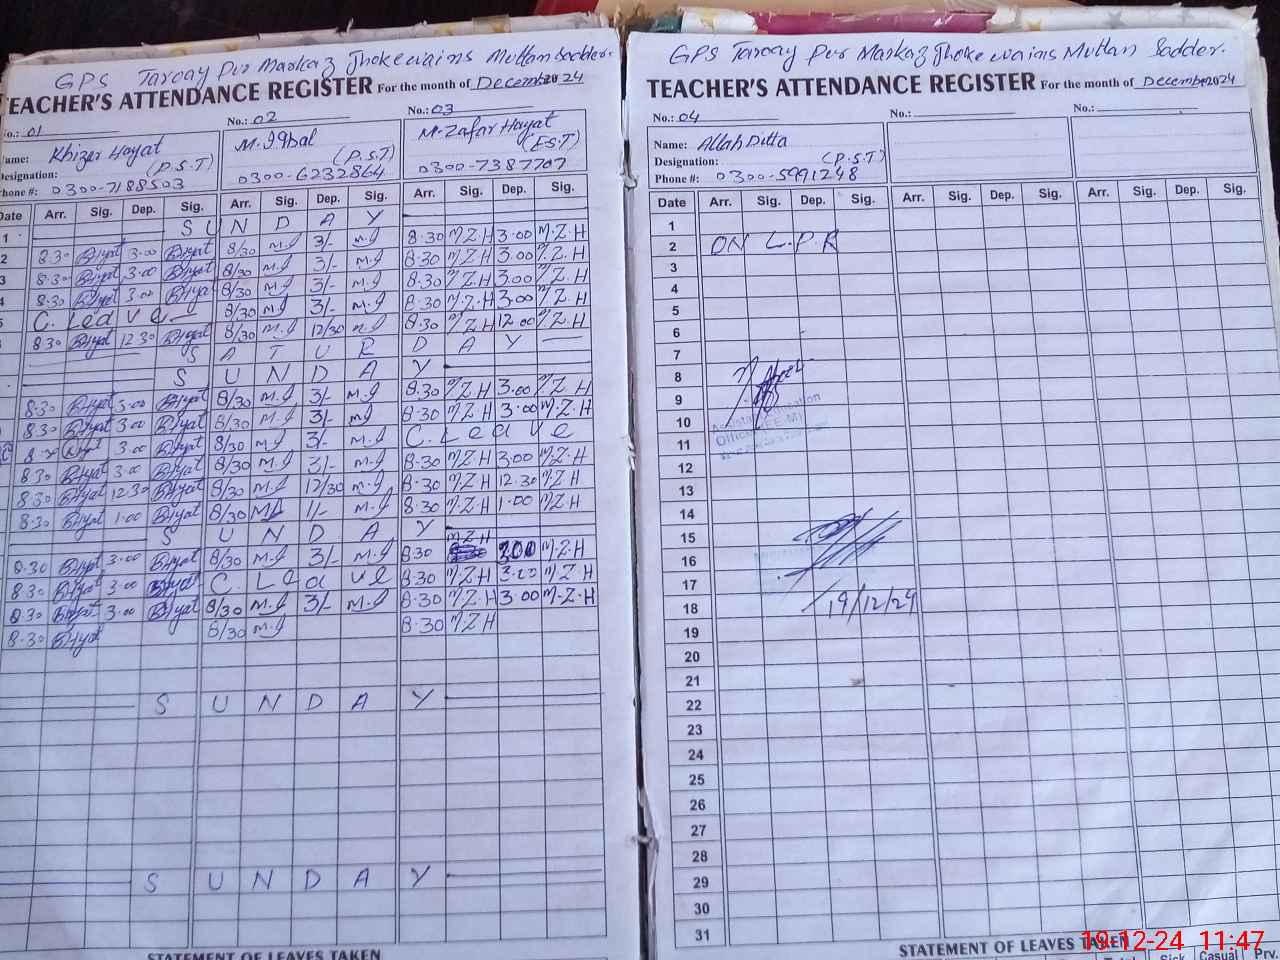 GPS Taroay Pur Markaz Jhoke wains Multan Sadder.
EACHER'S ATTENDANCE REGISTER For the month of December 2024
No.: 01 No.: 02 No.: 03
Khizer Hayat M. Iqbal M. Zafar Hayat
Designation: (P.S.T) (P.S.T) (E.S.T)
Phone #: 0300-7188503 0300-6232864 0300-7387707
Date Arr. Sig. Dep. Sig. Arr. Sig. Dep. Sig. Arr. Sig. Dep. Sig.
1 S U N D A Y
2 8.30 3.00 8/30 M.I 3/- M.I 8.30 M.Z.H 3.00 M.Z.H
3 8.30 3.00 8/30 M.I 3/- M.I 8.30 M.Z.H 3.00 M.Z.H
4 8.30 3.00 8/30 M.I 3/- M.I 8.30 M.Z.H 3.00 M.Z.H
C. Leave 8/30 M.I 3/- M.I 8.30 M.Z.H 3.00 M.Z.H
8.30 12.30 8/30 M.I 12/30 M.I 8.30 M.Z.H 12.00 M.Z.H
S A T U R D A Y
S U N D A Y
8.30 3.00 8/30 M.I 3/- M.I 8.30 M.Z.H 3.00 M.Z.H
8.30 3.00 8/30 M.I 3/- M.I 8.30 M.Z.H 3.00 M.Z.H
3.00 8/30 M.I 3/- M.I C. Leave
8.30 3.00 8/30 M.I 3/- M.I 8.30 M.Z.H 3.00 M.Z.H
8.30 12.30 8/30 M.I 12/30 M.I 8.30 M.Z.H 12.30 M.Z.H
8.30 1.00 8/30 M.I 1/- M.I 8.30 M.Z.H 1.00 M.Z.H
S U N D A Y
8.30 3.00 8/30 M.I 3/- M.I 8.30 M.Z.H 3.00 M.Z.H
8.30 3.00 C. Leave 8.30 M.Z.H 3.00 M.Z.H
8.30 3.00 8/30 M.I 3/- M.I 8.30 M.Z.H 3.00 M.Z.H
8.30 8/30 M.I 8.30 M.Z.H
S U N D A Y
S U N D A Y
STATEMENT OF LEAVES TAKEN
GPS Taroay Pur Markaz Jhoke wains Multan Sadder.
TEACHER'S ATTENDANCE REGISTER For the month of December 2024
No.: 04 No.: No.:
Name: Allah Ditta
Designation: (P.S.T)
Phone #: 0300-5991248
Date Arr. Sig. Dep. Sig. Arr. Sig. Dep. Sig. Arr. Sig. Dep. Sig.
1
2 ON L.P.R
3
4
5
6
7
8
9
10
11
12
13
14
15
16
17
18 19/12/24
19
20
21
22
23
24
25
26
27
28
29
30
31
STATEMENT OF LEAVES TAKEN
19-12-24 11:47
Total Sick Casual Prv.